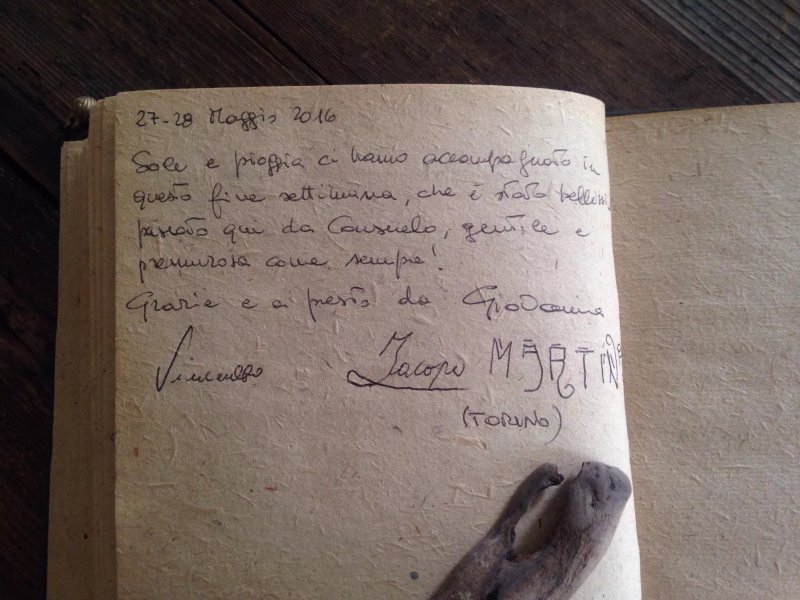 27-28 Maggio 2016
Sole e pioggia ci hanno accompagnato in
questo fine settimana, che è stato
passato qui da Consuelo, gentile e
premurosa come sempre!
Grazie e a presto da Giovanna
Vincenzo Jacopo MARTINA
(TORINO)